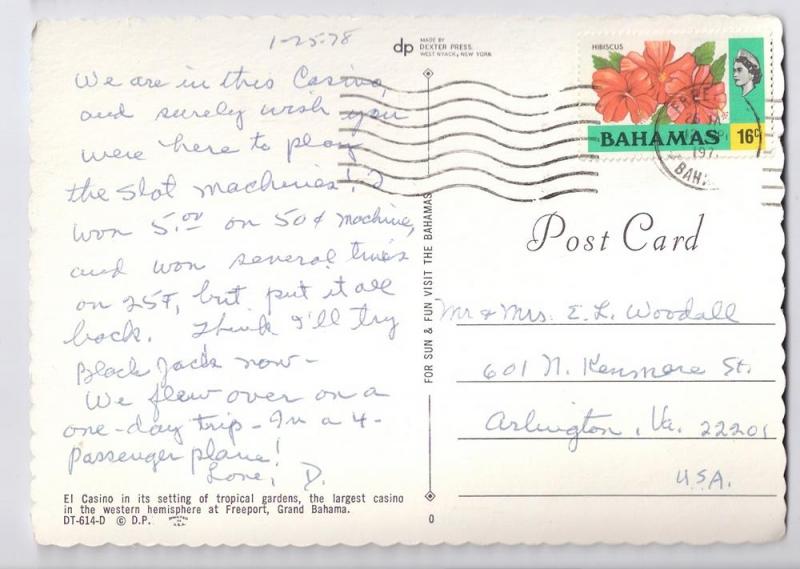 1-25-78
We are in this Casino,
and surely wish you
were here to play
the slot machines! I
won 5.00 on 50¢ machine,
and won several times
on 25¢, but put it all
back. Think I'll try
Black Jack now –
We flew over on a
one-day trip – In a 4-
passenger plane!
Love, D.
El Casino in its setting of tropical gardens, the largest casino
in the western hemisphere at Freeport, Grand Bahama.
DT-614-D © D.P.
dp
MADE BY
DEXTER PRESS
WEST NYACK, NEW YORK
FOR SUN & FUN VISIT THE BAHAMAS
0
HIBISCUS
BAHAMAS 16c
197
BAH
Post Card
Mr & Mrs. E. L. Woodall
601 N. Kenmore St.
Arlington, Va. 22201
U.S.A.